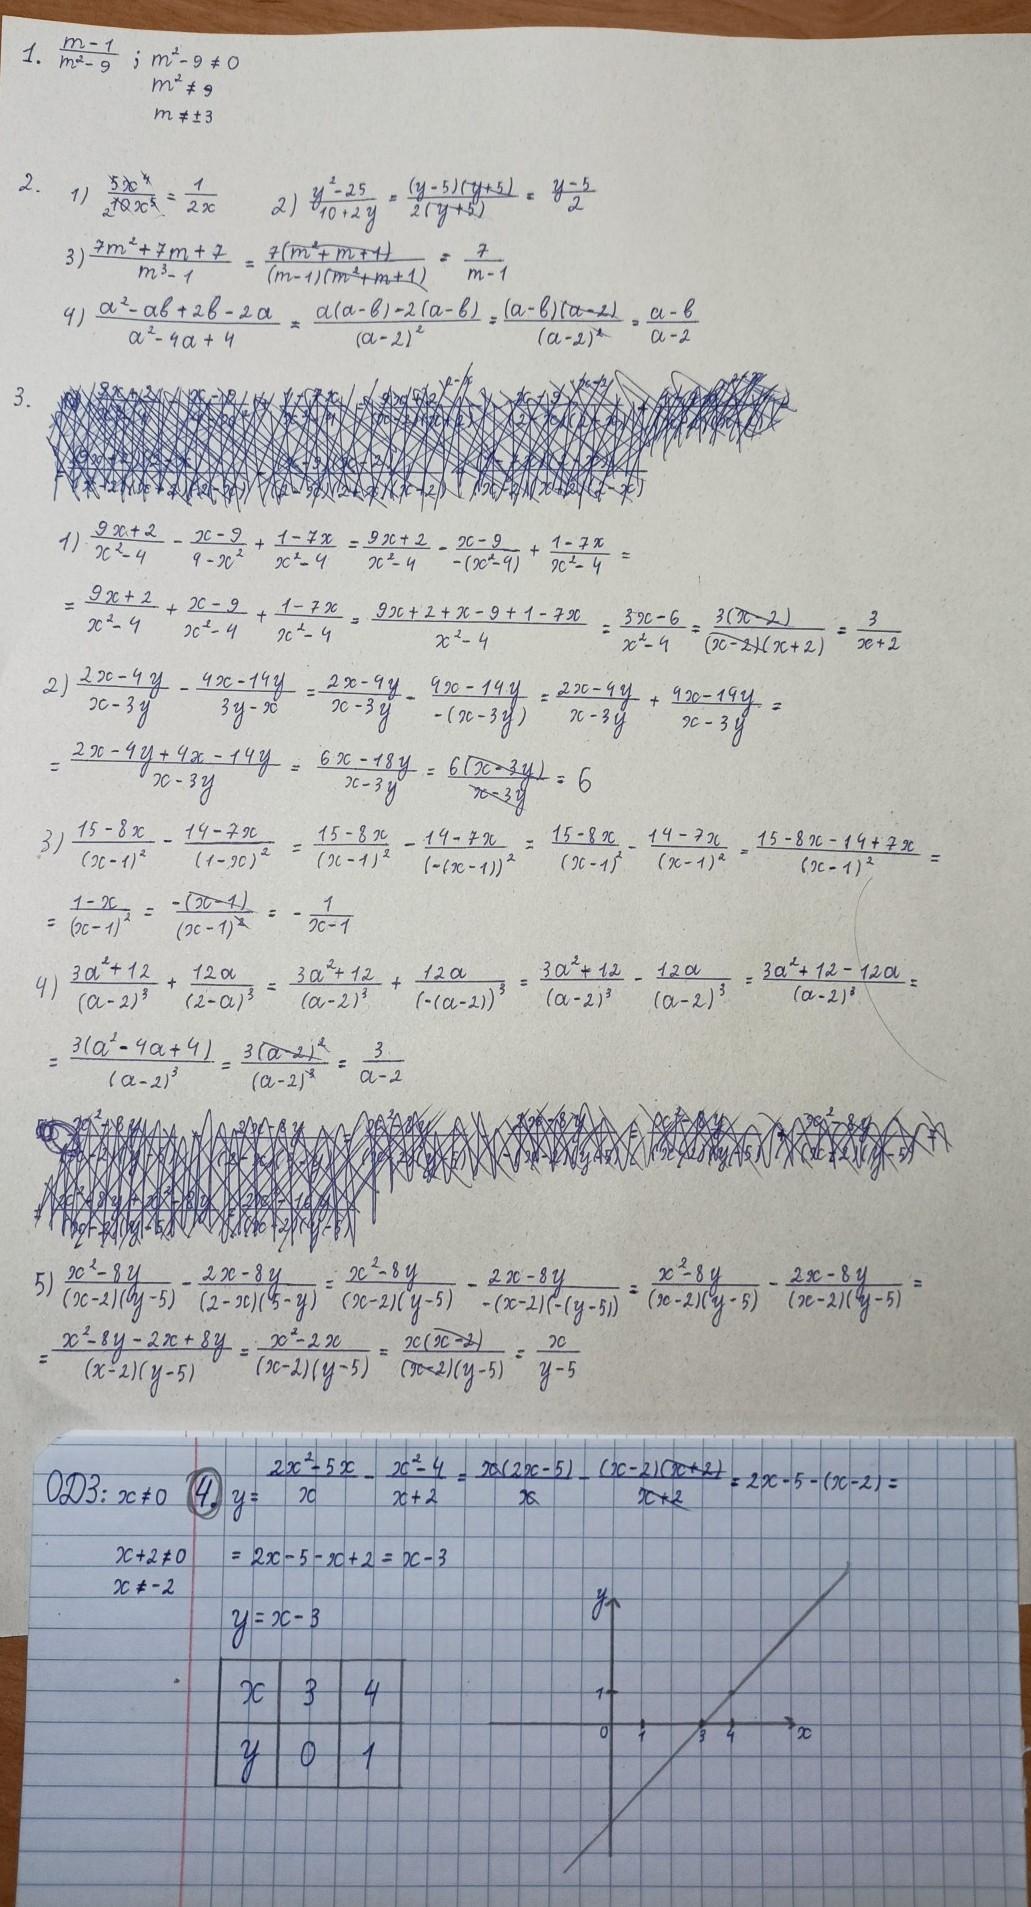 1. (m-1)/(m²-9) ; m²-9≠0
m²≠9
m≠±3
2. 1) 5x⁴/10x⁵ = 1/2x 2) (y²-25)/(10+2y) = (y-5)(y+5)/2(y+5) = (y-5)/2
3) (7m²+7m+7)/(m³-1) = 7(m²+m+1)/(m-1)(m²+m+1) = 7/(m-1)
4) (a²-ab+2b-2a)/(a²-4a+4) = (a(a-b)-2(a-b))/(a-2)² = (a-b)(a-2)/(a-2)² = (a-b)/(a-2)
3.
1) (9x+2)/(x²-4) - (x-9)/(4-x²) + (1-7x)/(x²-4) = (9x+2)/(x²-4) - (x-9)/-(x²-4) + (1-7x)/(x²-4) =
= (9x+2)/(x²-4) + (x-9)/(x²-4) + (1-7x)/(x²-4) = (9x+2+x-9+1-7x)/(x²-4) = (3x-6)/(x²-4) = 3(x-2)/(x-2)(x+2) = 3/(x+2)
2) (2x-4y)/(x-3y) - (4x-14y)/(3y-x) = (2x-4y)/(x-3y) - (4x-14y)/-(x-3y) = (2x-4y)/(x-3y) + (4x-14y)/(x-3y) =
= (2x-4y+4x-14y)/(x-3y) = (6x-18y)/(x-3y) = 6(x-3y)/(x-3y) = 6
3) (15-8x)/(x-1)² - (14-7x)/(1-x)² = (15-8x)/(x-1)² - (14-7x)/(-(x-1))² = (15-8x)/(x-1)² - (14-7x)/(x-1)² = (15-8x-14+7x)/(x-1)² =
= (1-x)/(x-1)² = -(x-1)/(x-1)² = - 1/(x-1)
4) (3a²+12)/(a-2)³ + 12a/(2-a)³ = (3a²+12)/(a-2)³ + 12a/(-(a-2))³ = (3a²+12)/(a-2)³ - 12a/(a-2)³ = (3a²+12-12a)/(a-2)³ =
= 3(a²-4a+4)/(a-2)³ = 3(a-2)²/(a-2)³ = 3/(a-2)
5) (x²-8y)/(x-2)(y-5) - (2x-8y)/(2-x)(5-y) = (x²-8y)/(x-2)(y-5) - (2x-8y)/-(x-2)(-(y-5)) = (x²-8y)/(x-2)(y-5) - (2x-8y)/(x-2)(y-5) =
= (x²-8y-2x+8y)/(x-2)(y-5) = (x²-2x)/(x-2)(y-5) = x(x-2)/(x-2)(y-5) = x/(y-5)
ОДЗ: x≠0 4. y= (2x²-5x)/x - (x²-4)/(x+2) = x(2x-5)/x - (x-2)(x+2)/(x+2) = 2x-5-(x-2) =
x+2≠0 = 2x-5-x+2 = x-3
x≠-2
y=x-3
x 3 4
y 0 1
y
1
0 1 3 4 x